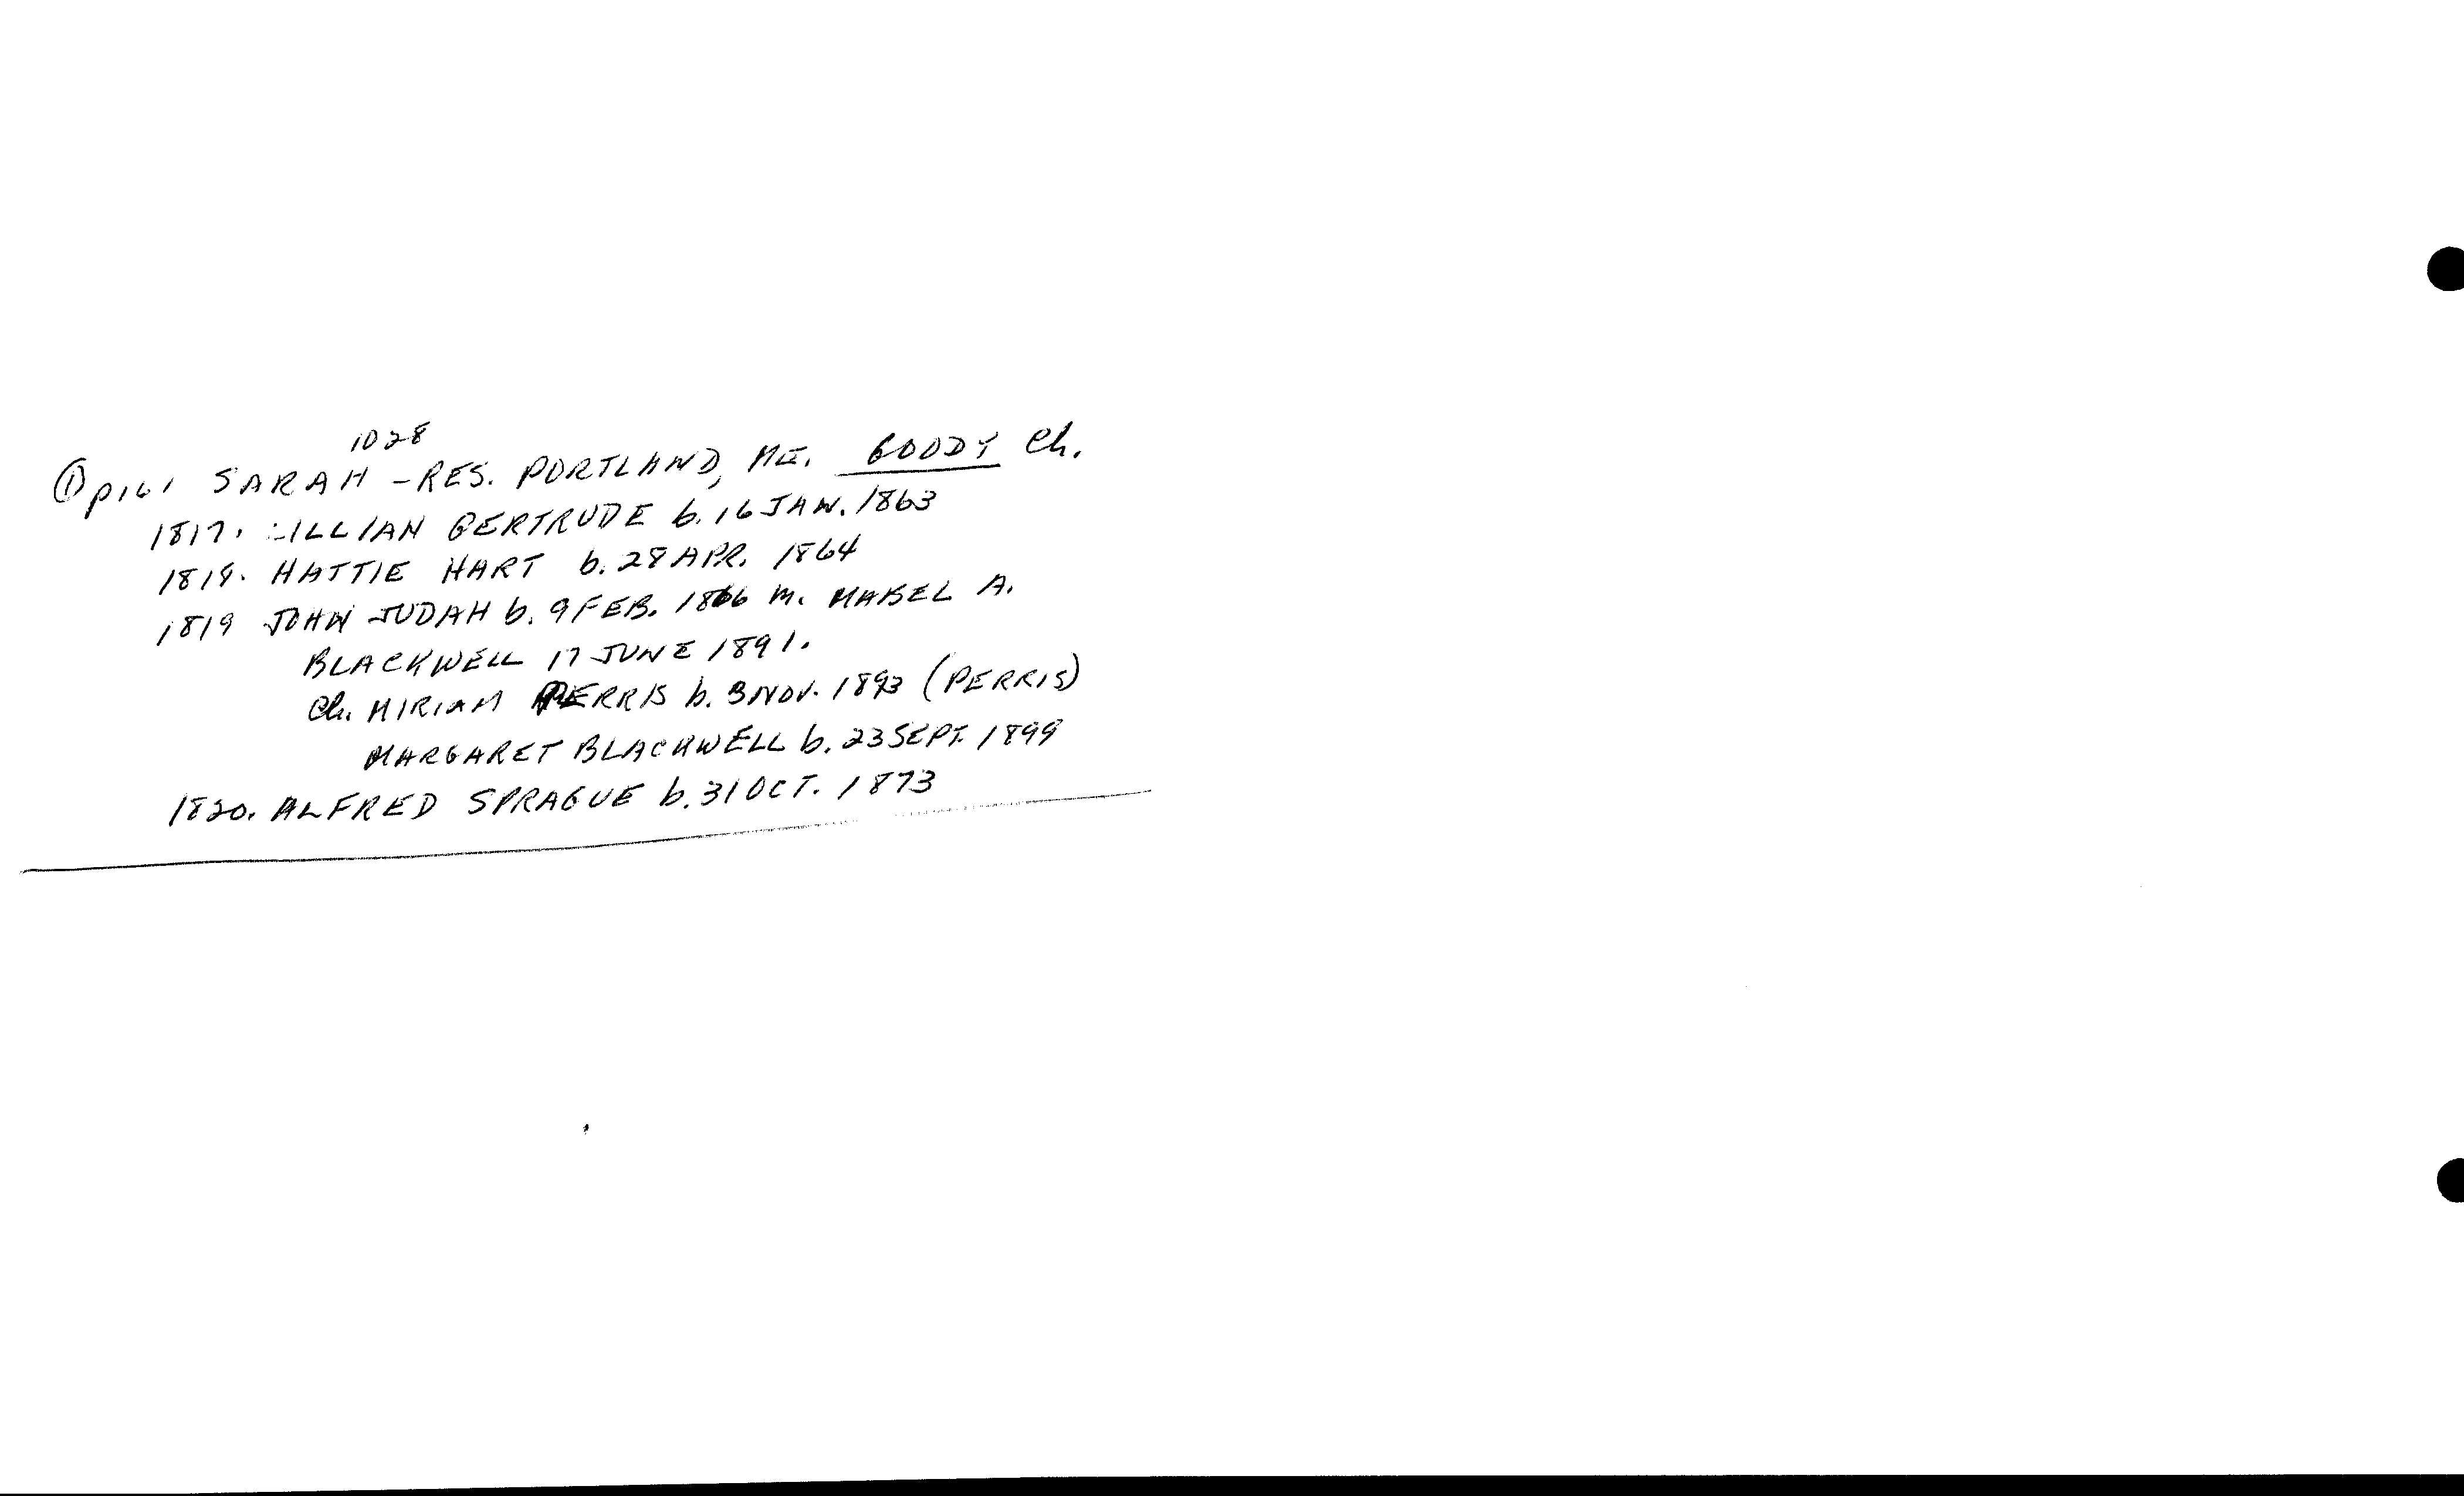 1028
① p161 SARAH - RES. PORTLAND, ME. GOODY Ch.
1817. LILLIAN GERTRUDE b. 16 JAN. 1863
1818. HATTIE HART b. 28 APR. 1864
1819 JOHN JUDAH b. 9 FEB. 1866 m. MABEL A.
BLACKWELL 17 JUNE 1891.
Ch. MIRIAM PERRIS b. 3 NOV. 1893 (PERRIS)
MARGARET BLACKWELL b. 23 SEPT. 1899
1820. ALFRED SPRAGUE b. 31 OCT. 1873